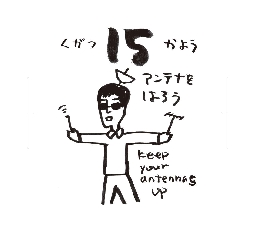 くがつ 15 かよう
アンテナを
はろう
keep
your
antennas
up